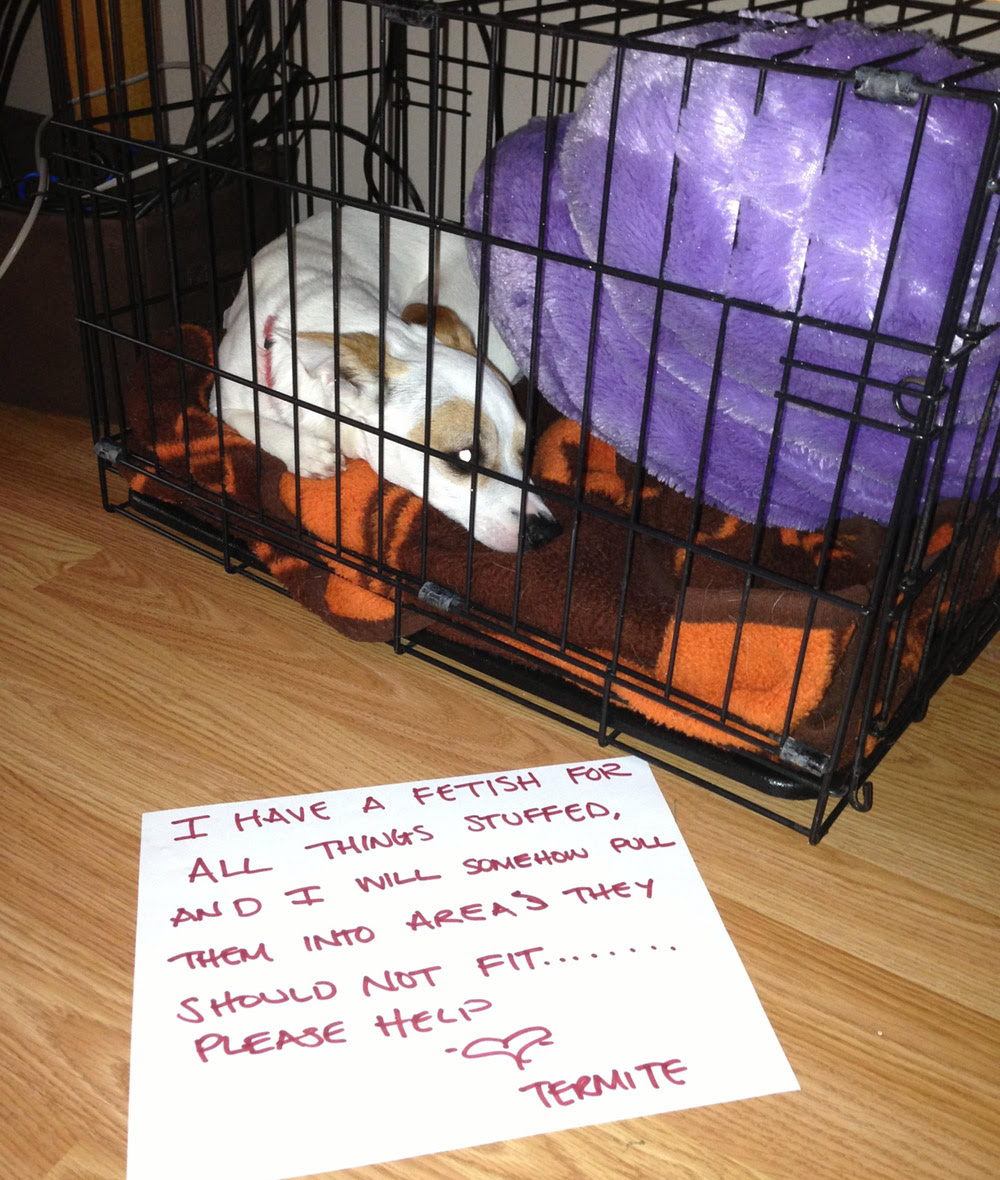 I HAVE A FETISH FOR
ALL THINGS STUFFED,
AND I WILL SOMEHOW PULL
THEM INTO AREA'S THEY
SHOULD NOT FIT........
PLEASE HELP
-♡
TERMITE